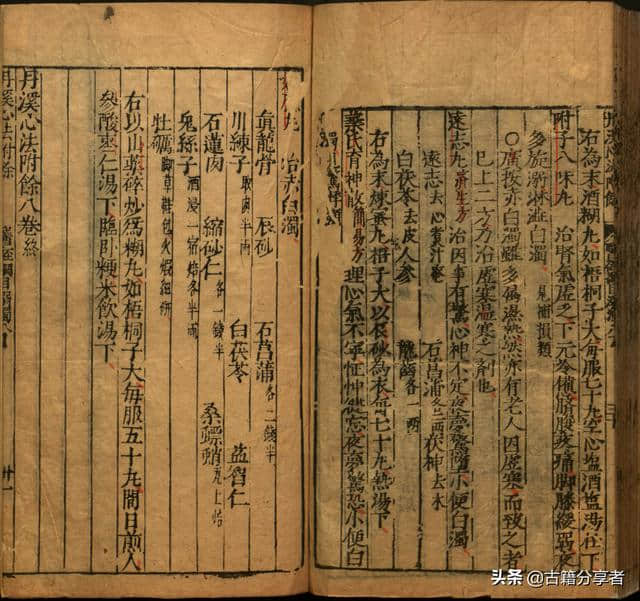 右為末酒糊丸如梧桐子大每服七十丸空心塩酒塩湯任下
附子八味丸 治腎氣虛乏下元冷憊臍腹疼痛脚膝緩弱夜
多旋溺淋瀝白濁 見補損類
〇廣按赤白濁雖多屬濕熱然亦有老人因虛寒而致之者
已上二方乃治虛寒溫寒之劑也
遠志丸 濟生方 治因事有驚心神不定夜夢驚墮小便白濁
遠志去心薑汁淹 石菖蒲各二兩 茯神去木
白茯苓去皮人參 龍齒各一兩
右為末煉蜜丸梧子大以辰砂為衣每七十丸熱湯下
葉氏育神散 簡易方 理心氣不寧怔忡健忘夜夢驚恐小便白
丸 治赤白濁
真龍骨 辰砂 石菖蒲各二錢半
川練子取肉半兩 白茯苓 益智仁
石蓮肉 縮砂仁各一錢半 桑螵蛸瓦上焙
兔絲子酒浸一宿焙各半兩
牡蠣脚草鞋包火煅細研
右以山藥碎炒爲糊丸如梧桐子大每服五十丸閒日煎人
參酸棗仁湯下臨臥粳米飲湯下
丹溪心法附餘八卷終
丹溪心法附餘
卄一
头条 @古籍分享者